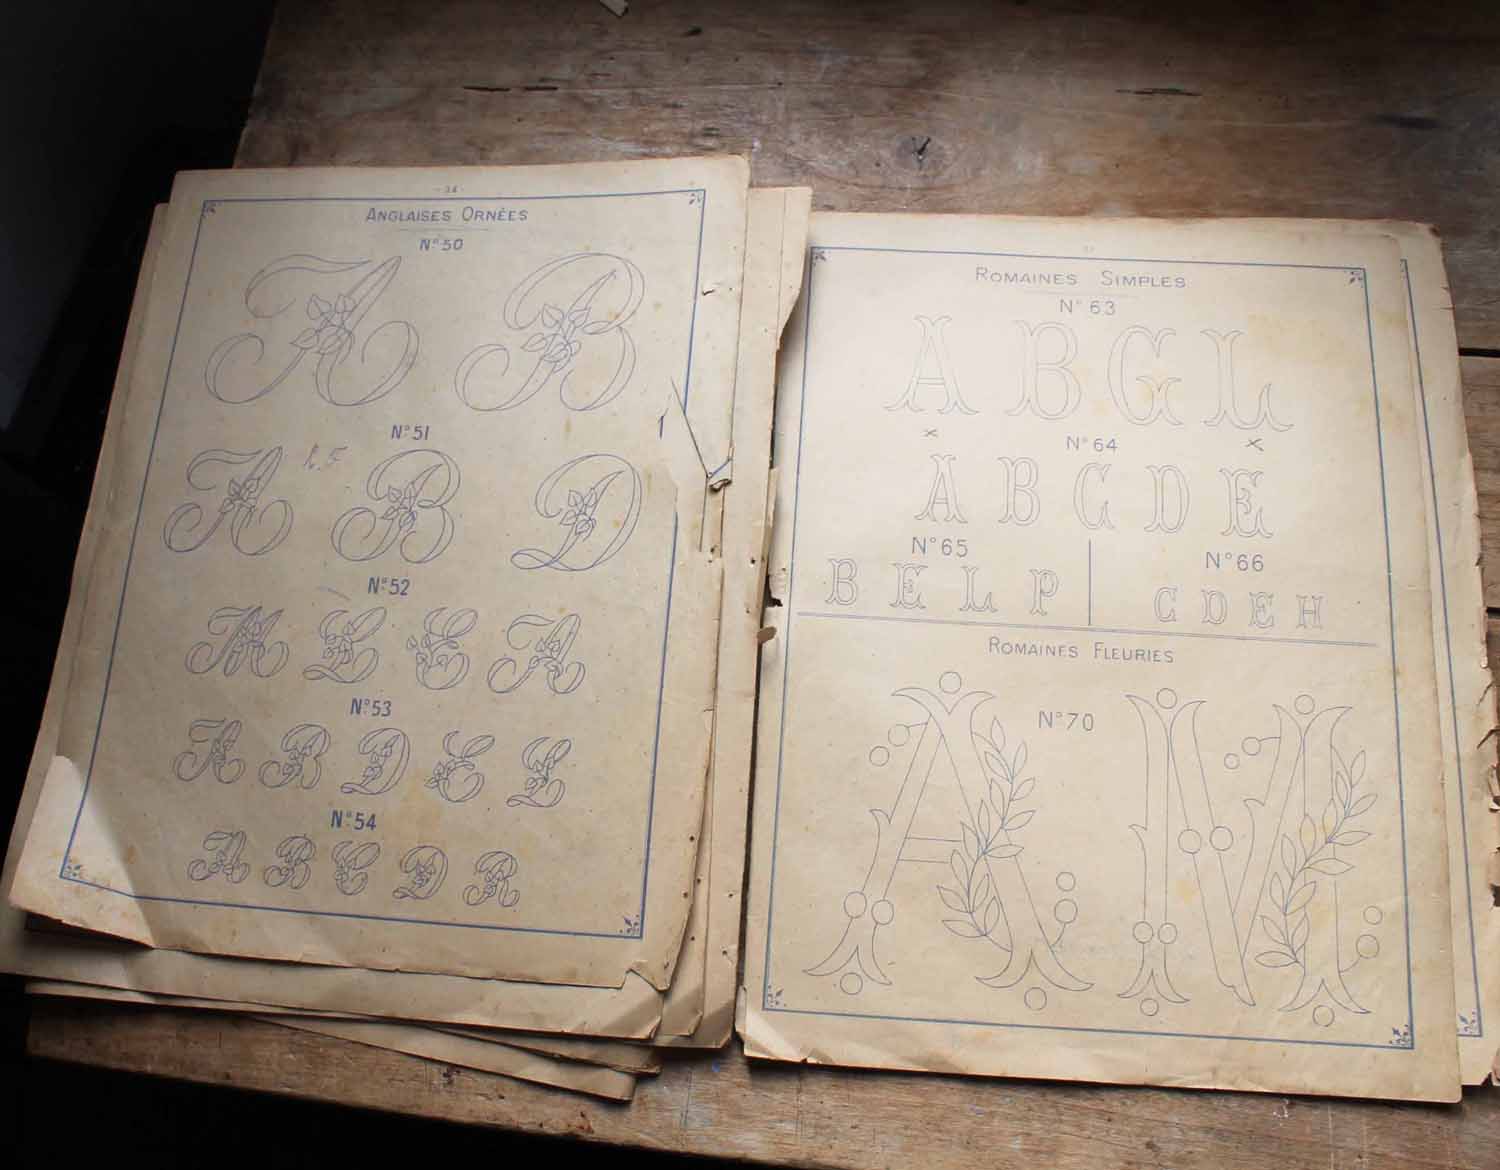 - 34 -
ANGLAISES ORNÉES
N° 50
A B
N° 51
A B D
N° 52
M L E A
N° 53
A B D E L
N° 54
A B C D R
ROMAINES SIMPLES
N° 63
A B G L
N° 64
A B C D E
N° 65
B E L P
N° 66
C D E H
ROMAINES FLEURIES
N° 70
A M